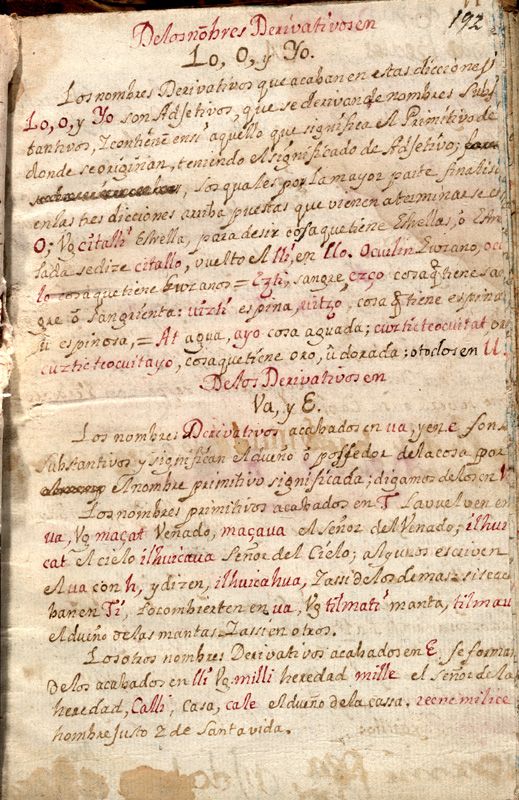 192
De los nõbres Derivativos en
Lo, O, y Yo.
Los nombres Derivativos que acaban en estas dicciones
Lo, o, y Yo son Adjetivos, que se derivan de nombres Subs
tantivos, Zcontienẽ ensi aquello que significa el Primitivo de
donde se originan, teniendo el significado de Adjetivo;
los quales por la mayor parte finalisã
en las tres dicciones arriba puestas que vienen a terminarse en
O; Vg citalli Estrella, para desir cosa que tiene Estrellas, ô Estre
lada se dize citallo, vuelto el lli, en llo. Ocuilin Guzano, ocui
lo cosa que tiene Guzanos = Ezti, sangre, ezço cosa q̃ tiene san
gre ô sangrienta: uitzti espina, uitzo, cosa q̃ tiene espina
û espinosa, = At agua, ayo cosa aguada; cuztic teocuitat oro
cuztic teocuitayo, cosa que tiene oro, û dorada: otoclos en U.
De los Derivativos en
Va, y E.
Los nombres Derivativos acabados en ua, yen e son
Substantivos y significan el dueño ô possedor de la cosa por
el nombre primitivo significada; digamos de los en V
Los nombres primitivos acabados en T la vuelven en
ua, Vg maçat Venado, maçaua el Señor del Venado; ilhui
cat el cielo ilhuicaua Señor del Cielo; algunos escriven
el ua con h, y dizen, ilhuicahua, Zassi de los demas = si se aca
ban en Ti, lo combierten en ua, Vg tilmati manta, tilmau
el dueño de las mantas = Zassi en otros.
Los otros nombres Derivativos acabados en E, se forman
de los acabados en lli Vg. milli heredad mille el Señor de la
heredad, Calli, Casa, cale el dueño de la cassa.
hombre Justo 2 de Santa vida.